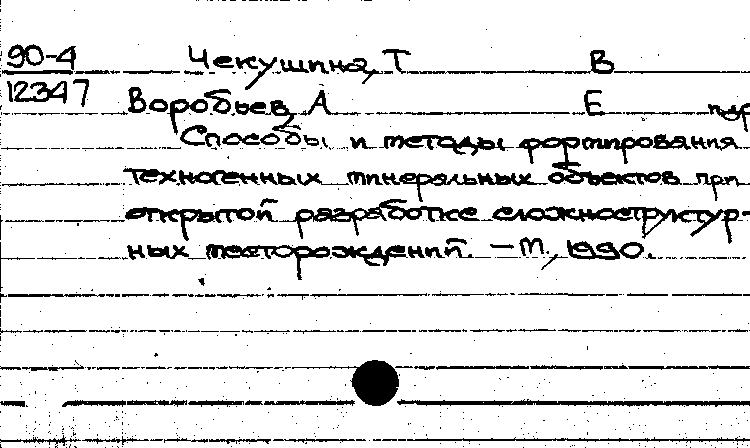 90-4 Чекушина, Т В
12347
Воробьев, А Е
Способы и методы формирования
техногенных минеральных объектов при
открытой разработке сложноструктур-
ных месторождений. - М., 1990.